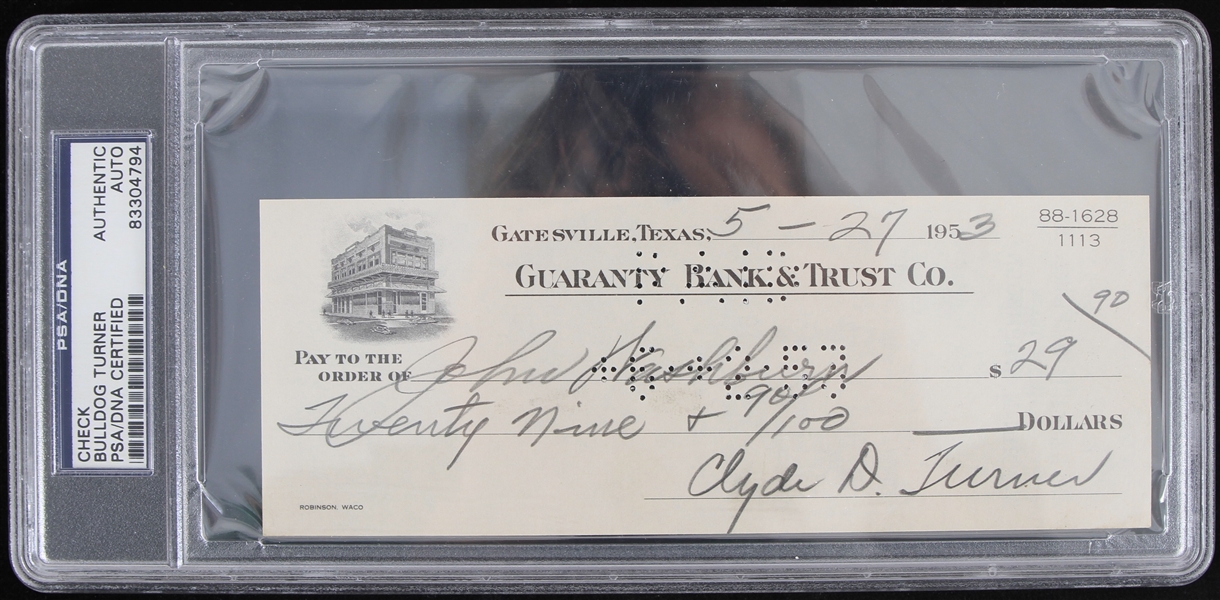 PSA/DNA
CHECK AUTHENTIC
BULLDOG TURNER AUTO
PSA/DNA CERTIFIED 83304794
GATESVILLE, TEXAS, 5 - 27 1953
88-1628
1113
GUARANTY BANK & TRUST CO.
PAY TO THE
ORDER OF John Washburn $ 29 90
Twenty Nine + 90/100 DOLLARS
Clyde D. Turner
ROBINSON, WACO